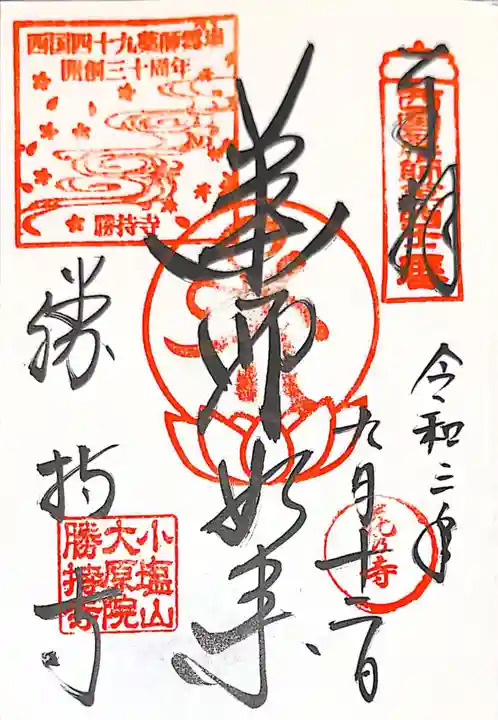 奉拝
令和三年
九月十二日
花の寺
薬師如来
西国四十九薬師霊場
開創三十周年
勝持寺
勝持寺
小塩山
大原院
勝持寺